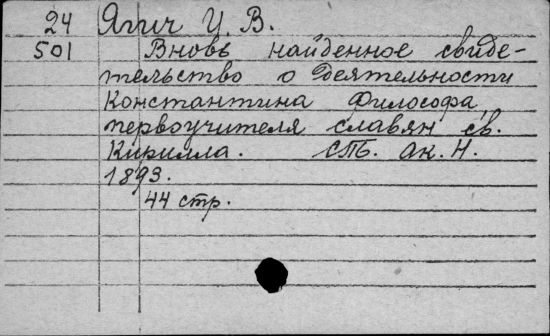 24 Ягич И. В.
501 Вновь найденное свиде-
тельство о деятельности
Константина Философа,
первоучителя славян св.
Кирилла. СПб. Ак. Н.
1893.
44 стр.